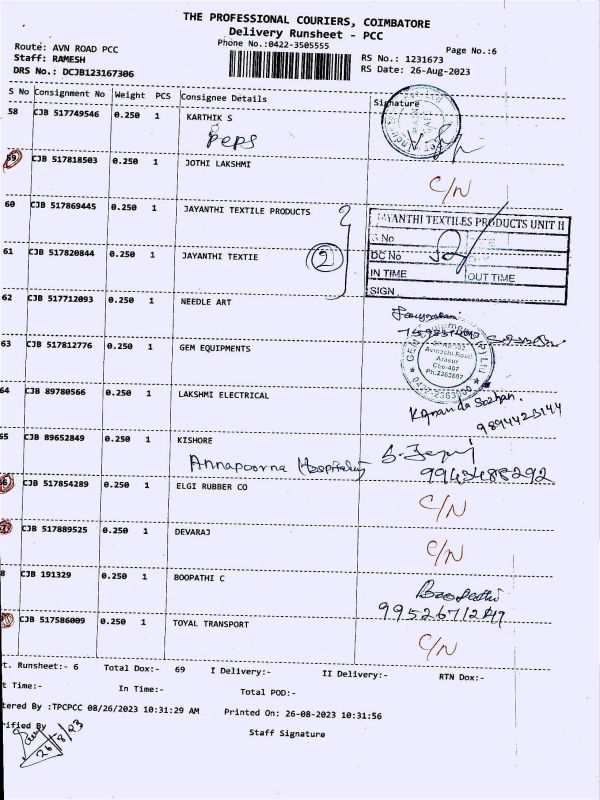 THE PROFESSIONAL COURIERS, COIMBATORE
Delivery Runsheet - PCC
Phone No.:0422-3505555
Page No.:6
Route: AVN ROAD PCC
Staff: RAMESH
RS No.: 1231673
DRS No.: DCJB123167306
RS Date: 26-Aug-2023
S No Consignment No Weight PCS Consignee Details Signature
58 CJB 517749546 0.250 1 KARTHIK S
Peps
59 CJB 517818503 0.250 1 JOTHI LAKSHMI
C/N
60 CJB 517869445 0.250 1 JAYANTHI TEXTILE PRODUCTS
JAYANTHI TEXTILES PRODUCTS UNIT II
No
DC No
IN TIME OUT TIME
SIGN
61 CJB 517820844 0.250 1 JAYANTHI TEXTIE
2
62 CJB 517712093 0.250 1 NEEDLE ART
63 CJB 517812776 0.250 1 GEM EQUIPMENTS
Avinashi Road
Arasur
Cbe-407
Ph:2363807
64 CJB 89780566 0.250 1 LAKSHMI ELECTRICAL
9894423144
65 CJB 89652849 0.250 1 KISHORE
Annapoorna Hospitality
9943488292
66 CJB 517854289 0.250 1 ELGI RUBBER CO
C/N
67 CJB 517889525 0.250 1 DEVARAJ
C/N
8 CJB 191329 0.250 1 BOOPATHI C
Boopathi
CJB 517586009 0.250 1 TOYAL TRANSPORT
C/N
t. Runsheet:- 6 Total Dox:- 69 I Delivery:- II Delivery:- RTN Dox:-
t Time:- In Time:- Total POD:-
tered By :TPCPCC 08/26/2023 10:31:29 AM Printed On: 26-08-2023 10:31:56
rified By
Staff Signature
26/8/23